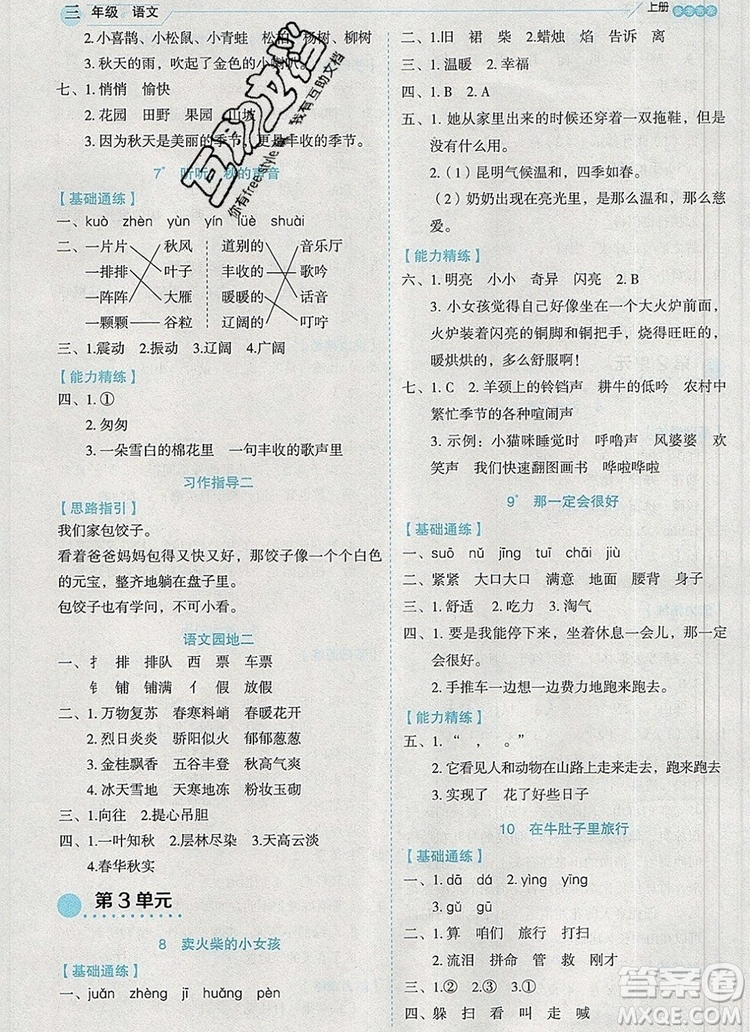 三 年级 语文
上册
参考答案
2.小喜鹊、小松鼠、小青蛙 松树、杨树、柳树
3.秋天的雨，吹起了金色的小喇叭。
七、1.悄悄 愉快
2.花园 田野 果园 山坡
3.因为秋天是美丽的季节，更是丰收的季节。
7* 听听，秋的声音
【基础通练】
一、kuò zhèn yùn yín lüè shuài
二、一片片 秋风 道别的 音乐厅
一排排 叶子 丰收的 歌吟
一阵阵 大雁 暖暖的 话音
一颗颗 谷粒 辽阔的 叮咛
三、1.震动 2.振动 3.辽阔 4.广阔
【能力精练】
四、1.①
2.匆匆
3.一朵雪白的棉花里 一句丰收的歌声里
习作指导二
【思路指引】
我们家包饺子。
看着爸爸妈妈包得又快又好，那饺子像一个个白色
的元宝，整齐地躺在盘子里。
包饺子可真不简单，不可小看。
语文园地二
一、扌 排 排队 西 票 车票
钅 铺 铺满 亻 假 放假
二、1.万物复苏 春寒料峭 春暖花开
2.烈日炎炎 骄阳似火 郁郁葱葱
3.金桂飘香 五谷丰登 秋高气爽
4.冰天雪地 天寒地冻 滴水成冰
三、1.向往 2.提心吊胆
四、1.一叶知秋 2.层林尽染 3.天高云淡
4.春华秋实
第3单元
8 卖火柴的小女孩
【基础通练】
一、juǎn zhèng jī huǎng pèn
二、1.旧 裙 柴 2.蜡烛 焰 告诉 离
三、1.温暖 2.幸福
四、1.B 2.A
五、1.她从家里出来的时候还穿着一双拖鞋，但是
没有什么用。
2.（1）昆明气候温和，四季如春。
（2）奶奶出现在亮光里，是那么温和，那么慈
爱。
【能力精练】
六、1.明亮 小小 奇异 闪亮 2.B
3.小女孩觉得自己像坐在一个大火炉前面，
火炉装着闪亮的铜脚和铜把手，烧得旺旺的，
暖烘烘的，多么舒服啊！
七、1.C 2.羊颈上的铃铛声 耕牛的低吟 农村中
繁忙季节的各种喧闹声
3.示例：小猫咪睡觉时 呼噜声 风婆婆 欢
笑声 我们快速翻图画书 哗啦哗啦
9* 那一定会很好
【基础通练】
一、suō nǔ jīng tuī chāi jiù
二、紧紧 大口大口 满意 地面 腰背 身子
三、1.舒适 2.吃力 3.淘气
四、1.要是我能坐下来，坐着休息一会儿，那一定
会很好。
2.手推车一边想一边费力地跑来跑去。
【能力精练】
五、1.“ ， 。”
2.它能看见人和动物在山路上走来走去，跑来跑去
3.实现了 花了好些日子
10 在牛肚子里旅行
【基础通练】
一、1.dā dá 2.yìng yīng
3.gǔ gū
二、1.算 咱们 旅行 打扫
2.流泪 拼命 管 救 刚才
三、1.①② 2.③① 3.①②
四、躲 扫 看 叫 走 喊
互助文档
我有互助文档
你有free style
答案圈
MXQE.COM